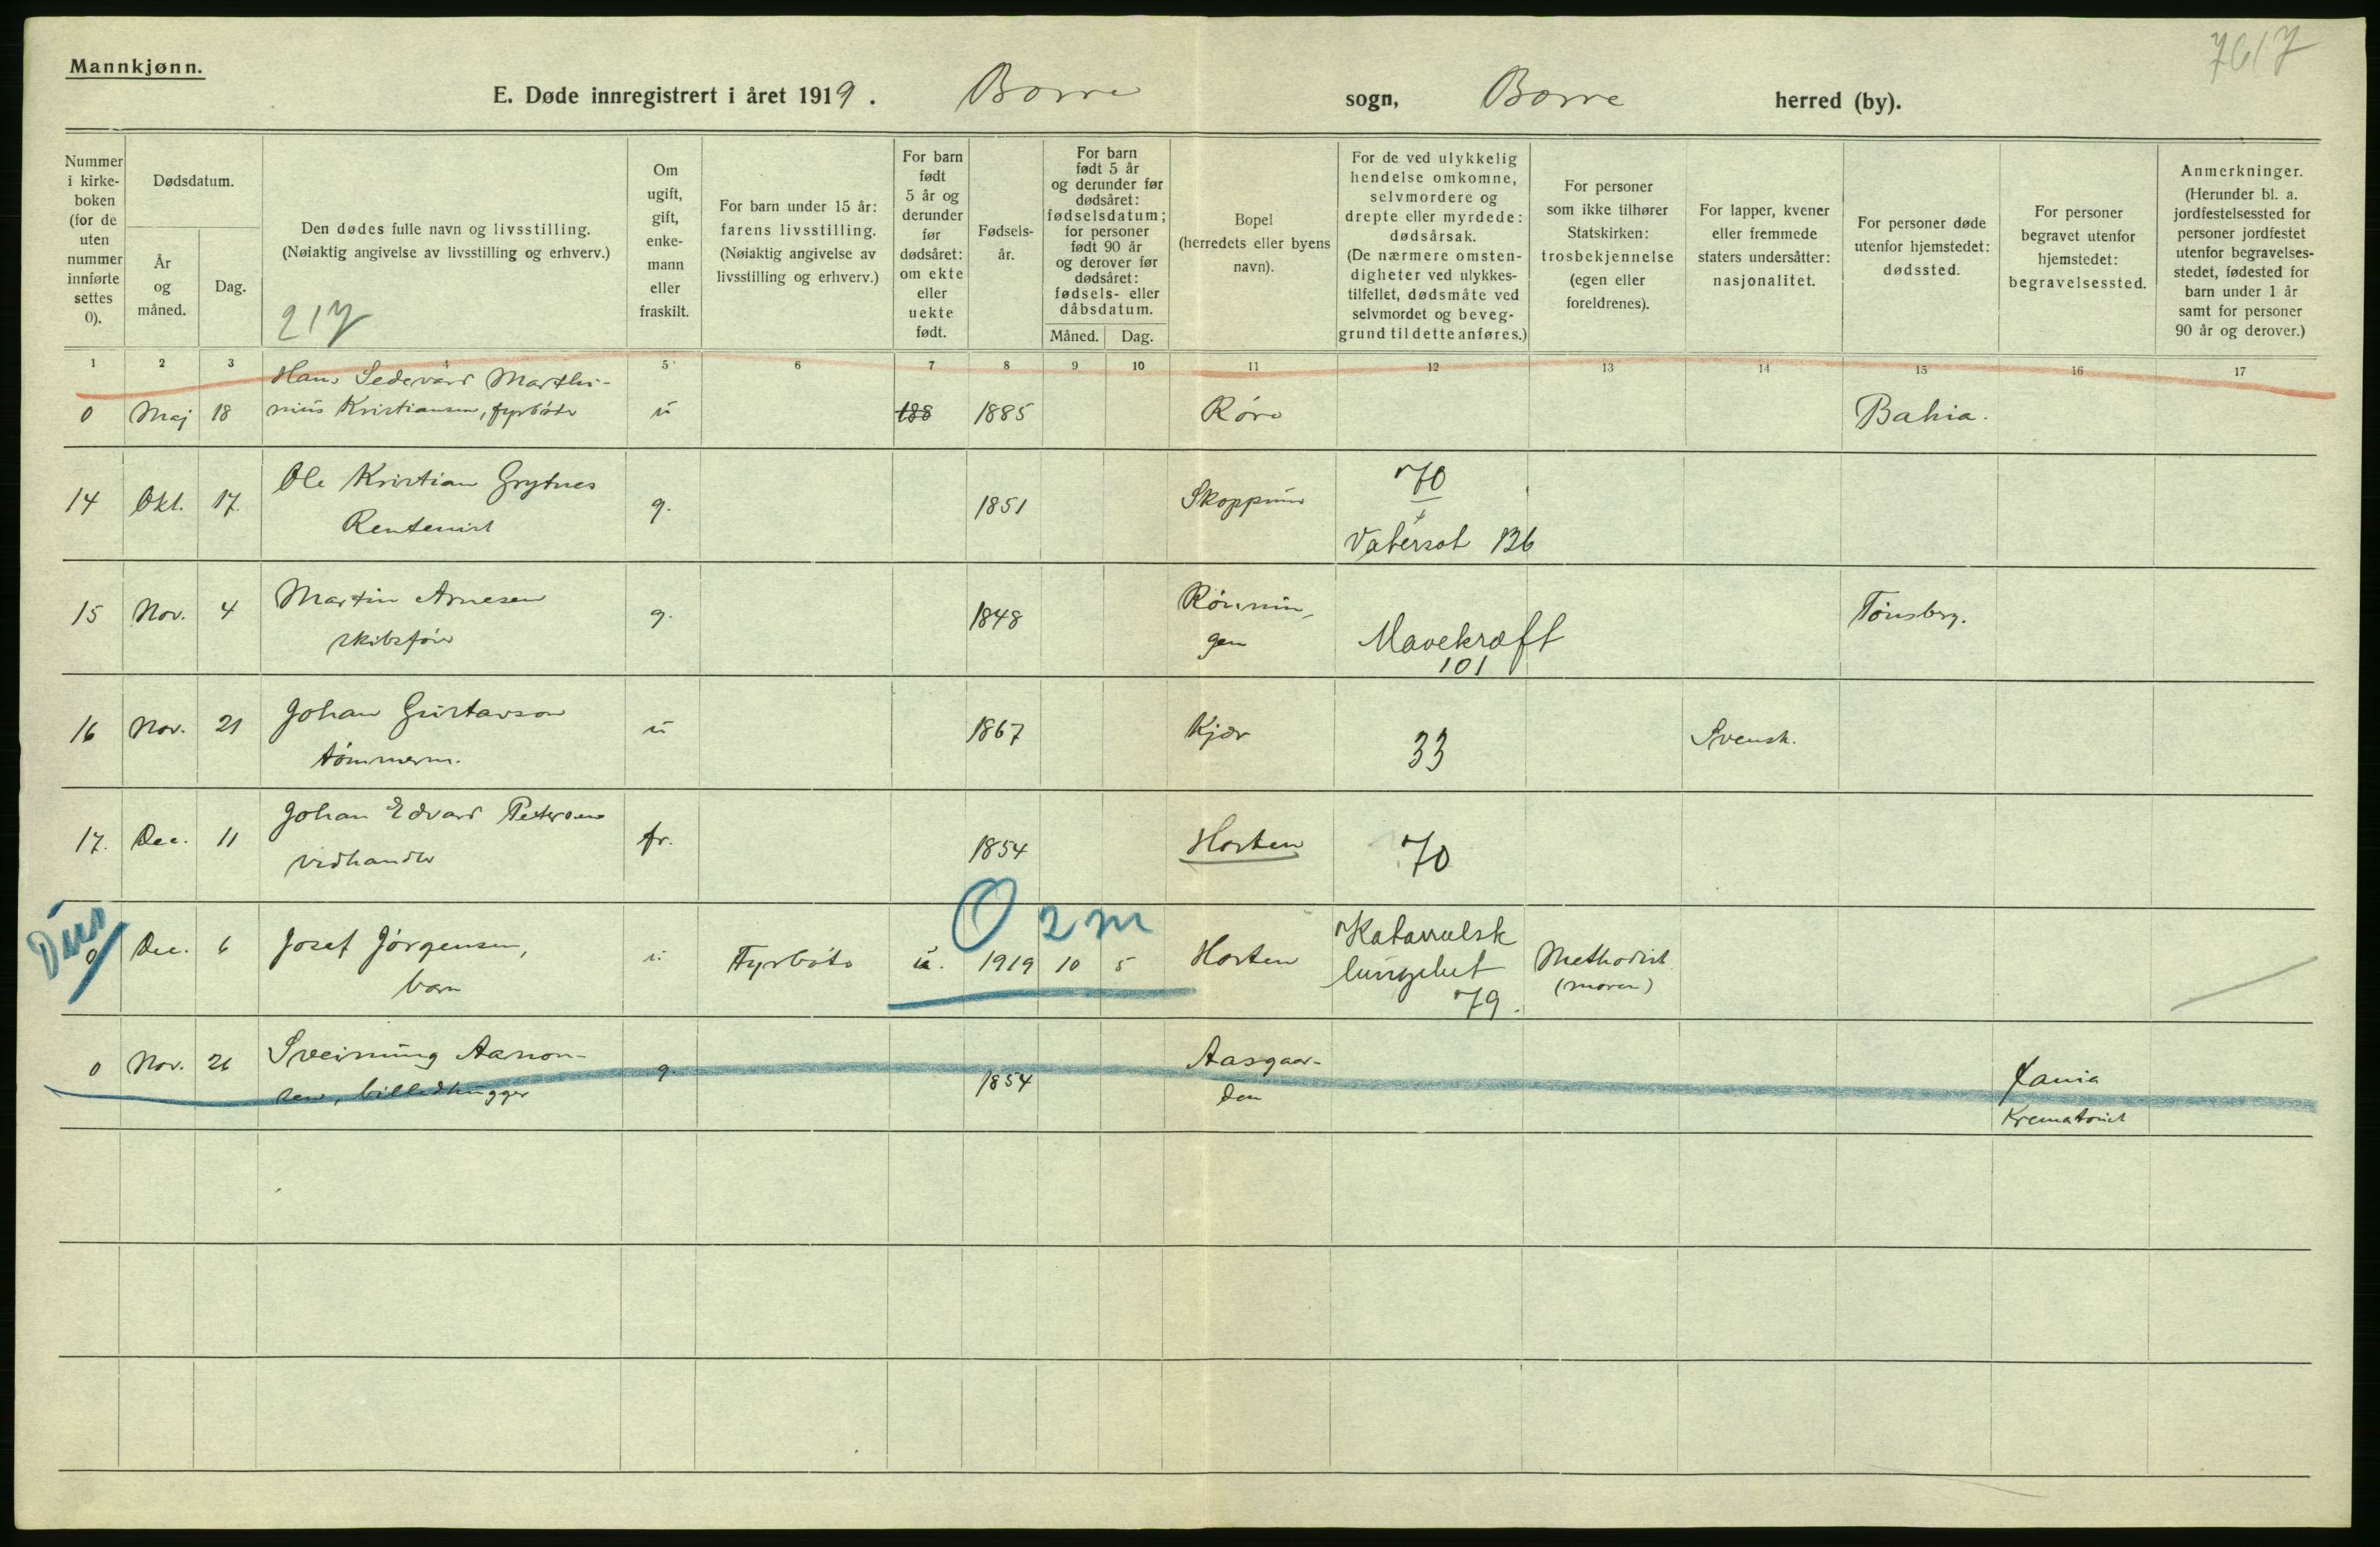 7617
Mannkjønn.
E. Døde innregistrert i året 1919. Borre sogn, Borre herred (by).
Nummer i kirke-boken (for de uten nummer innførte settes 0).
Dødsdatum.
År og måned.
Dag.
Den dødes fulle navn og livsstilling.
(Nøiaktig angivelse av livsstilling og erhverv.)
217
Om ugift, gift, enke-mann eller fraskilt.
For barn under 15 år: farens livsstilling. (Nøiaktig angivelse av livsstilling og erhverv.)
For barn født 5 år og derunder før dødsåret: om ekte eller uekte født.
Fødsels-år.
For barn født 5 år og derunder før dødsåret: fødselsdatum; for personer født 90 år og derover før dødsåret: fødsels- eller dåbsdatum.
Måned. Dag.
Bopel (herredets eller byens navn).
For de ved ulykkelig hendelse omkomne, selvmordere og drepte eller myrdede: dødsårsak. (De nærmere omsten-digheter ved ulykkes-tilfellet, dødsmåte ved selvmordet og beveg-grund til dette anføres.)
For personer som ikke tilhører Statskirken: trosbekjennelse (egen eller foreldrenes).
For lapper, kvener eller fremmede staters undersåtter: nasjonalitet.
For personer døde utenfor hjemstedet: dødssted.
For personer begravet utenfor hjemstedet: begravelsessted.
Anmerkninger. (Herunder bl. a. jordfestelsessted for personer jordfestet utenfor begravelses-stedet, fødested for barn under 1 år samt for personer 90 år og derover.)
1 2 3 4 5 6 7 8 9 10 11 12 13 14 15 16 17
Hans Sedevard Marthi-
0 Maj 18 nius Kristiansen, fyrbøter u 188 1885 Røre Bahia.
Ole Kristian Grytnes 70
14 Okt. 17. Rentenist g. 1851 Skoppum
Vatersot 136
Martin Arnesen Rønnin-
15 Nov. 4 skibsfører g. 1848 gen Mavekræft Tønsberg.
101
Johan Gustavson
16 Nov. 21 tømmerm. u 1867 Kjær 33 Svensk.
Johan Edvard Petersen
17. Dec. 11 vedhandler fr. 1854 Horten 70
Døvs 0 2 m
0 Dec. 6 Josef Jørgensen, u Fyrbøter u. 1919 10 5 Horten Katarralsk Methodist
barn lungebet (moren)
79.
0 Nov. 26 Sveinung Aanon- g. 1854 Aasgaar-
sen, billedhugger den
Krematoriet